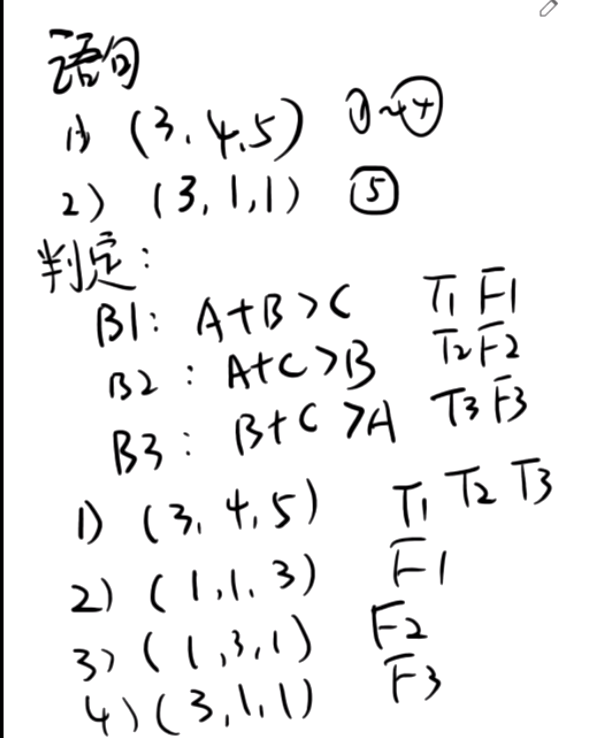 语句
1) (3,4,5) ①~④
2) (3,1,1) ⑤
判定:
B1: A+B>C T1 F1
B2: A+C>B T2 F2
B3: B+C>A T3 F3
1) (3,4,5) T1 T2 T3
2) (1,1,3) F1
3) (1,3,1) F2
4) (3,1,1) F3